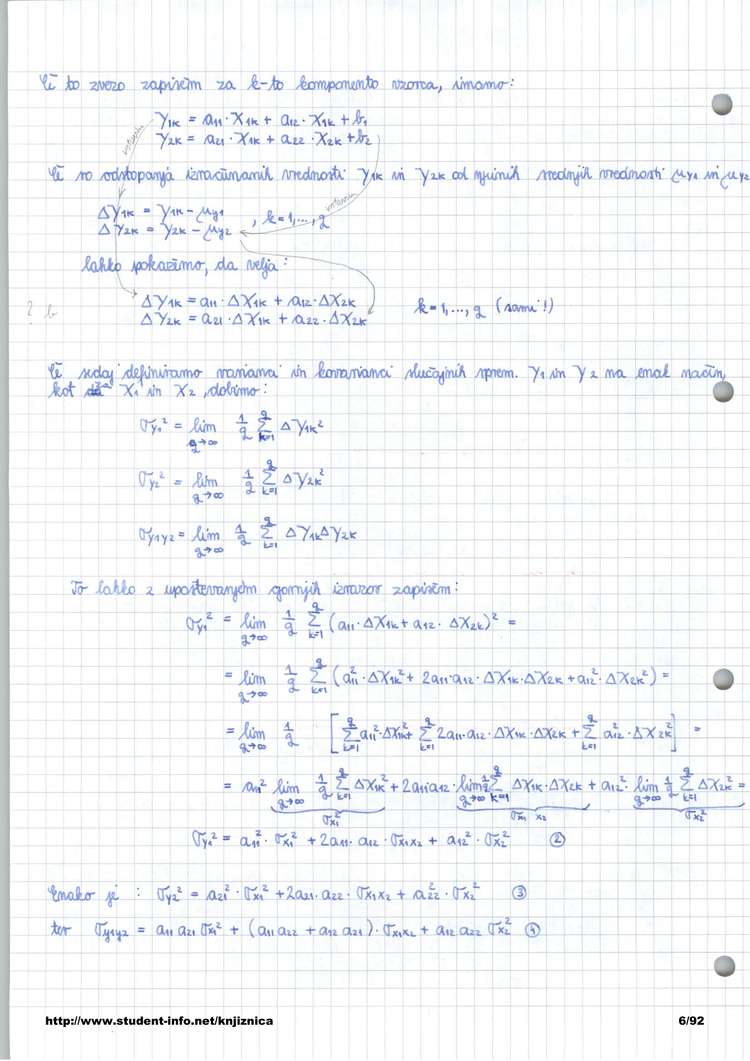 Če to zvezo zapišem za k-to komponento vzorca, imamo:
Y1k = a11 · X1k + a12 · X1k + b1
Y2k = a21 · X1k + a22 · X2k + b2
vstavim
Če so odstopanja izračunanih vrednosti Y1k in Y2k od njunih srednjih vrednosti μy1 in μy2
vstavim
ΔY1k = Y1k - μy1
ΔY2k = Y2k - μy2 , k=1,...,q
lahko pokažemo, da velja:
ΔY1k = a11 · ΔX1k + a12 · ΔX2k
? b
k=1,...,q (sami!)
ΔY2k = a21 · ΔX1k + a22 · ΔX2k
Če sedaj definiramo varianci in kovarianci slučajnih sprem. Y1 in Y2 na enak način,
kot X1 in X2, dobimo:
σy1² = lim q→∞ 1/q Σ k=1 q ΔY1k²
σy2² = lim q→∞ 1/q Σ k=1 q ΔY2k²
σy1y2 = lim q→∞ 1/q Σ k=1 q ΔY1kΔY2k
To lahko z upoštevanjem gornjih izrazov zapišem:
σy1² = lim q→∞ 1/q Σ k=1 q (a11 · ΔX1k + a12 · ΔX2k)² =
= lim q→∞ 1/q Σ k=1 q (a11² · ΔX1k² + 2a11·a12 · ΔX1k·ΔX2k + a12² · ΔX2k²) =
= lim q→∞ 1/q [Σ k=1 q a11²·ΔX1k² + Σ k=1 q 2a11·a12 · ΔX1k · ΔX2k + Σ k=1 q a12² · ΔX2k²] =
= a11² lim q→∞ 1/q Σ k=1 q ΔX1k² + 2a11a12 · lim q→∞ 1/q Σ k=1 q ΔX1k·ΔX2k + a12² · lim q→∞ 1/q Σ k=1 q ΔX2k² =
σx1² σx1 x2 σx2²
σy1² = a11² · σx1² + 2a11 · a12 · σx1x2 + a12² · σx2² ②
Enako je : σy2² = a21² · σx1² + 2a21·a22 · σx1x2 + a22² · σx2² ③
ter σy1y2 = a11 a21 σx1² + (a11 a22 + a12 a21) · σx1x2 + a12 a22 σx2² ④
http://www.student-info.net/knjiznica 6/92